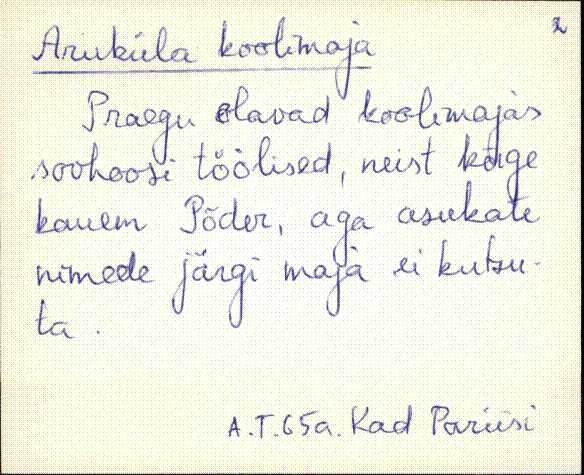 2
Aruküla koolimaja
Praegu elavad koolimajas
sovhoosi töölised, neist kõige
kauem Põder, aga asukate
nimede järgi maja ei kutsu-
ta.
A.T. 65a. Kad Pariisi